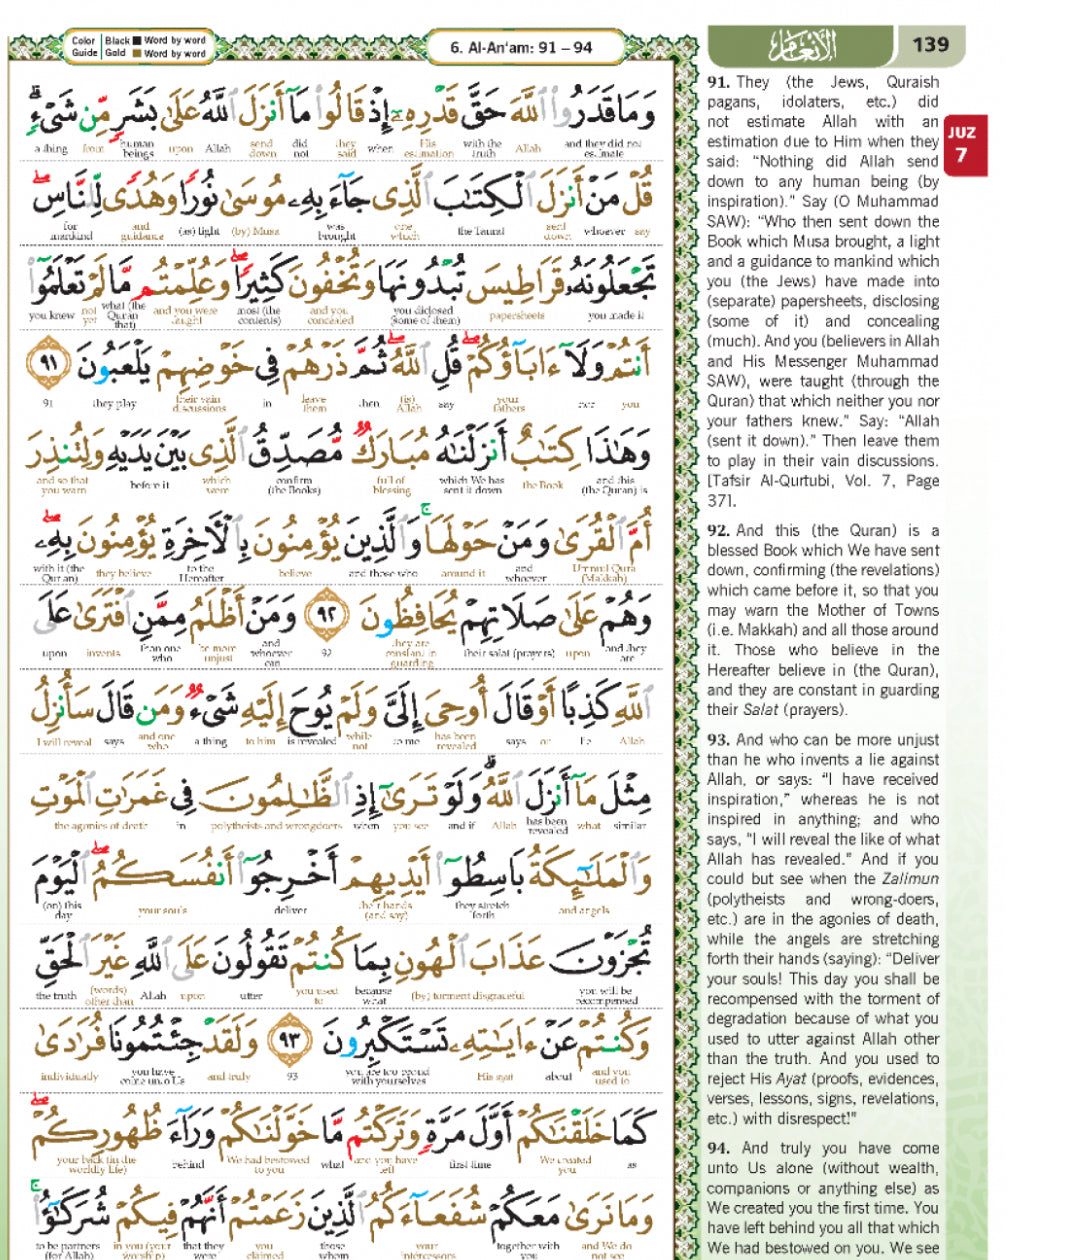 Color Guide
Black Word by word
Gold Word by word
6. Al-An'am: 91 – 94
الأنعام
139
JUZ
7
وَمَا قَدَرُوا۟ ٱللَّهَ حَقَّ قَدْرِهِۦٓ إِذْ قَالُوا۟ مَآ أَنزَلَ ٱللَّهُ عَلَىٰ بَشَرٍ مِّن شَىْءٍۗ
and they did not estimate Allah with the truth His estimation when they said did not send down Allah upon human beings from a thing
قُلْ مَنْ أَنزَلَ ٱلْكِتَـٰبَ ٱلَّذِى جَآءَ بِهِۦ مُوسَىٰ نُورًا وَهُدًى لِّلنَّاسِۖ
say whoever sent down the Taurat one which was brought (by) Musa (as) light and guidance for mankind
تَجْعَلُونَهُۥ قَرَاطِيسَ تُبْدُونَهَا وَتُخْفُونَ كَثِيرًاۖ وَعُلِّمْتُم مَّا لَمْ تَعْلَمُوٓا۟
you made it papersheets you diclosed (some of them) and you concealed most (the contents) and you were taught what (the Quran that) not yet you knew
أَنتُمْ وَلَآ ءَابَآؤُكُمْۖ قُلِ ٱللَّهُۖ ثُمَّ ذَرْهُمْ فِى خَوْضِهِمْ يَلْعَبُونَ ٩١
you nor your fathers say (is) Allah then leave them in their vain discussions they play 91
وَهَـٰذَا كِتَـٰبٌ أَنزَلْنَـٰهُ مُبَارَكٌ مُّصَدِّقُ ٱلَّذِى بَيْنَ يَدَيْهِ وَلِتُنذِرَ
and this (the Quran) is the Book which We has sent it down full of blessing confirm (the Books) which were before it and so that you warn
أُمَّ ٱلْقُرَىٰ وَمَنْ حَوْلَهَاۚ وَٱلَّذِينَ يُؤْمِنُونَ بِٱلْـَٔاخِرَةِ يُؤْمِنُونَ بِهِۦۖ
Ummul Qura (Makkah) and whoever around it and those who believe to the Hereafter they believe with it (the Qur'an)
وَهُمْ عَلَىٰ صَلَاتِهِمْ يُحَافِظُونَ ٩٢ وَمَنْ أَظْلَمُ مِمَّنِ ٱفْتَرَىٰ عَلَى
and they are upon their salat (prayers) they are constant in guarding 92 and whoever can be more unjust than one who invents upon
ٱللَّهِ كَذِبًا أَوْ قَالَ أُوحِىَ إِلَىَّ وَلَمْ يُوحَ إِلَيْهِ شَىْءٌ وَمَن قَالَ سَأُنزِلُ
Allah lie or says has been revealed to me while not is revealed to him a thing and one who says I will reveal
مِثْلَ مَآ أَنزَلَ ٱللَّهُۗ وَلَوْ تَرَىٰٓ إِذِ ٱلظَّـٰلِمُونَ فِى غَمَرَٰتِ ٱلْمَوْتِ
similar what has been revealed Allah and if you see when polytheists and wrongdoers in the agonies of death
وَٱلْمَلَـٰٓئِكَةُ بَاسِطُوٓا۟ أَيْدِيهِمْ أَخْرِجُوٓا۟ أَنفُسَكُمُۖ ٱلْيَوْمَ
and angels they stretch forth their hands (and say) deliver your souls (on) this day
تُجْزَوْنَ عَذَابَ ٱلْهُونِ بِمَا كُنتُمْ تَقُولُونَ عَلَى ٱللَّهِ غَيْرَ ٱلْحَقِّ
you will be recompensed (by) torment disgraceful because what you used to utter upon Allah (words) other than the truth
وَكُنتُمْ عَنْ ءَايَـٰتِهِۦ تَسْتَكْبِرُونَ ٩٣ وَلَقَدْ جِئْتُمُونَا فُرَٰدَىٰ
and you used to about His ayat you are too proud with yourselves 93 and truly you have come unto Us individually
كَمَا خَلَقْنَـٰكُمْ أَوَّلَ مَرَّةٍ وَتَرَكْتُم مَّا خَوَّلْنَـٰكُمْ وَرَآءَ ظُهُورِكُمْۖ
as We created you first time and you have left what We had bestowed to you behind your back (in the worldly life)
وَمَا نَرَىٰ مَعَكُمْ شُفَعَآءَكُمُ ٱلَّذِينَ زَعَمْتُمْ أَنَّهُمْ فِيكُمْ شُرَكَـٰٓؤُا۟ۚ
and We do not see together with you your intercessors those whom you claimed that they were in you (your worship) to be partners (for Allah)
91. They (the Jews, Quraish
pagans, idolaters, etc.) did
not estimate Allah with an
estimation due to Him when they
said: “Nothing did Allah send
down to any human being (by
inspiration).” Say (O Muhammad
SAW): “Who then sent down the
Book which Musa brought, a light
and a guidance to mankind which
you (the Jews) have made into
(separate) papersheets, disclosing
(some of it) and concealing
(much). And you (believers in Allah
and His Messenger Muhammad
SAW), were taught (through the
Quran) that which neither you nor
your fathers knew.” Say: “Allah
(sent it down).” Then leave them
to play in their vain discussions.
[Tafsir Al-Qurtubi, Vol. 7, Page
37].
92. And this (the Quran) is a
blessed Book which We have sent
down, confirming (the revelations)
which came before it, so that you
may warn the Mother of Towns
(i.e. Makkah) and all those around
it. Those who believe in the
Hereafter believe in (the Quran),
and they are constant in guarding
their Salat (prayers).
93. And who can be more unjust
than he who invents a lie against
Allah, or says: “I have received
inspiration,” whereas he is not
inspired in anything; and who
says, “I will reveal the like of what
Allah has revealed.” And if you
could but see when the Zalimun
(polytheists and wrong-doers,
etc.) are in the agonies of death,
while the angels are stretching
forth their hands (saying): “Deliver
your souls! This day you shall be
recompensed with the torment of
degradation because of what you
used to utter against Allah other
than the truth. And you used to
reject His Ayat (proofs, evidences,
verses, lessons, signs, revelations,
etc.) with disrespect!”
94. And truly you have come
unto Us alone (without wealth,
companions or anything else) as
We created you the first time. You
have left behind you all that which
We had bestowed on you. We see